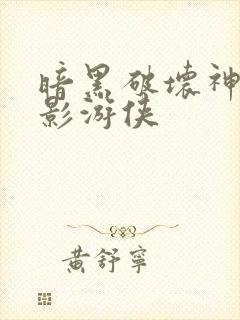 暗黑破坏神
影游侠
黄舒宁